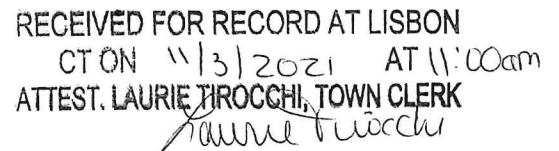 RECEIVED FOR RECORD AT LISBON
CT ON 11/3/2021 AT 11:00am
ATTEST. LAURIE TIROCCHI, TOWN CLERK
Laurie Tirocchi